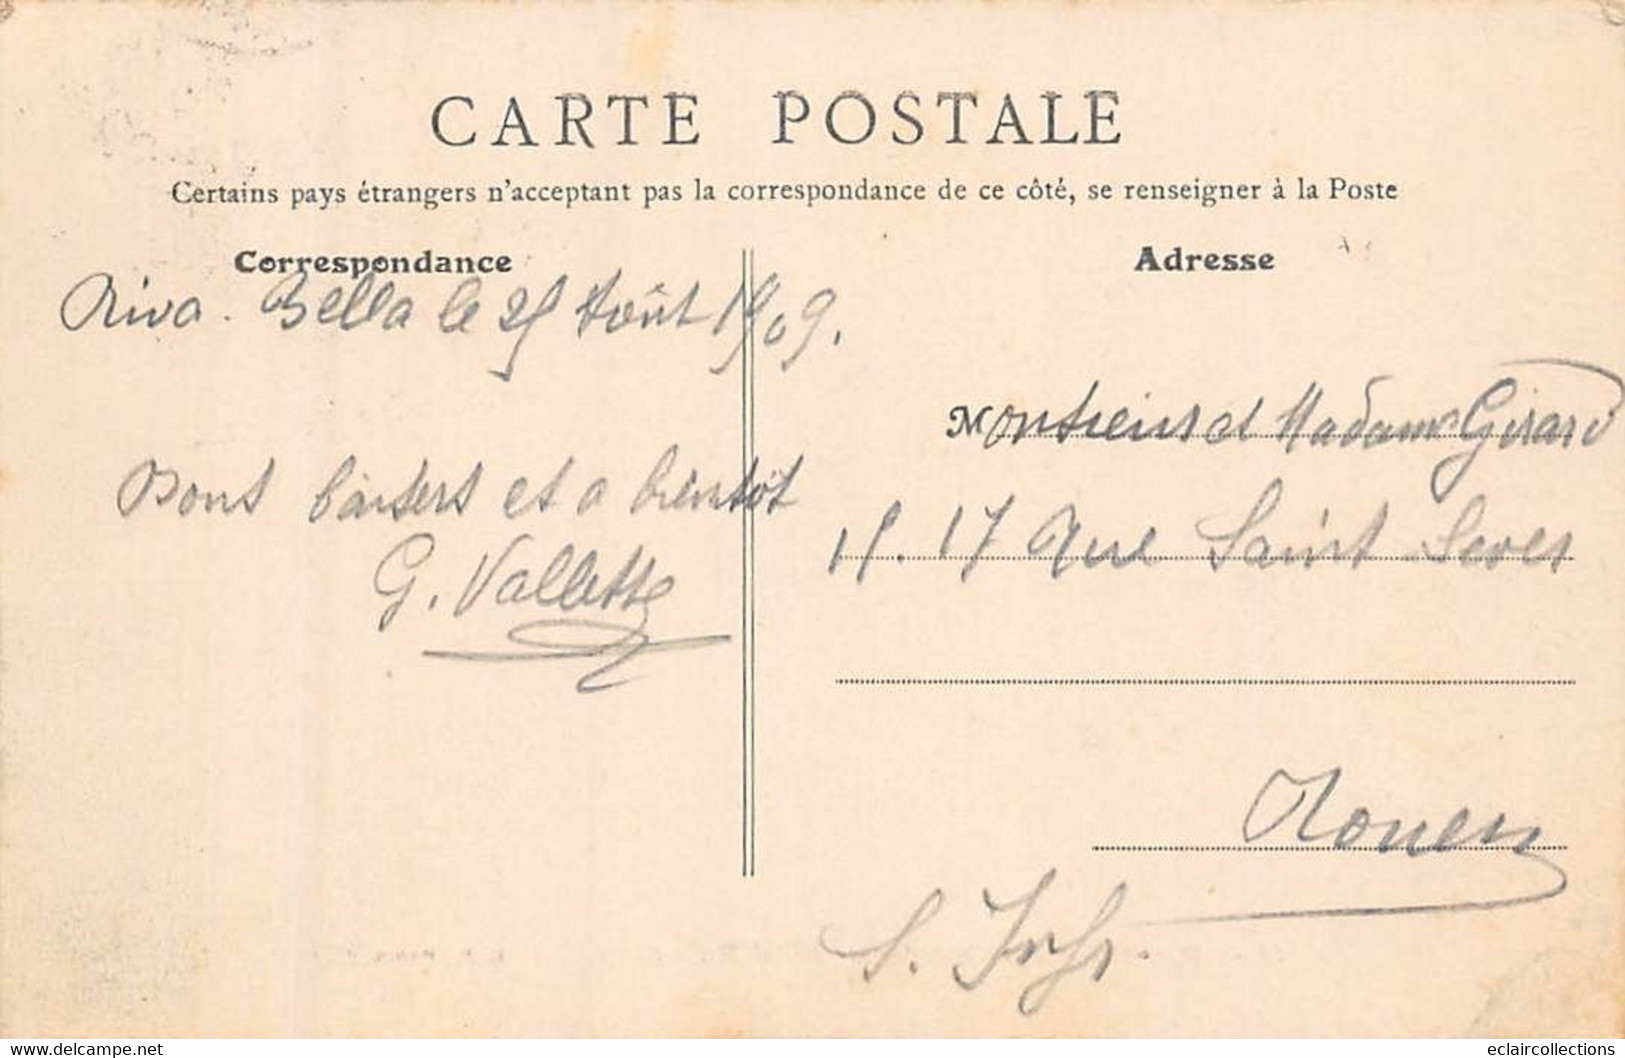 CARTE POSTALE
Certains pays étrangers n'acceptant pas la correspondance de ce côté, se renseigner à la Poste
Correspondance
Riva. Bella le 25 Août 1909.
Bons baisers et a bientôt
G. Vallette
Adresse
Monsieur et Madame Girard
15. 17 Rue Saint Sever
Rouen
S. Infr.
www.delcampe.net
eclaircollections